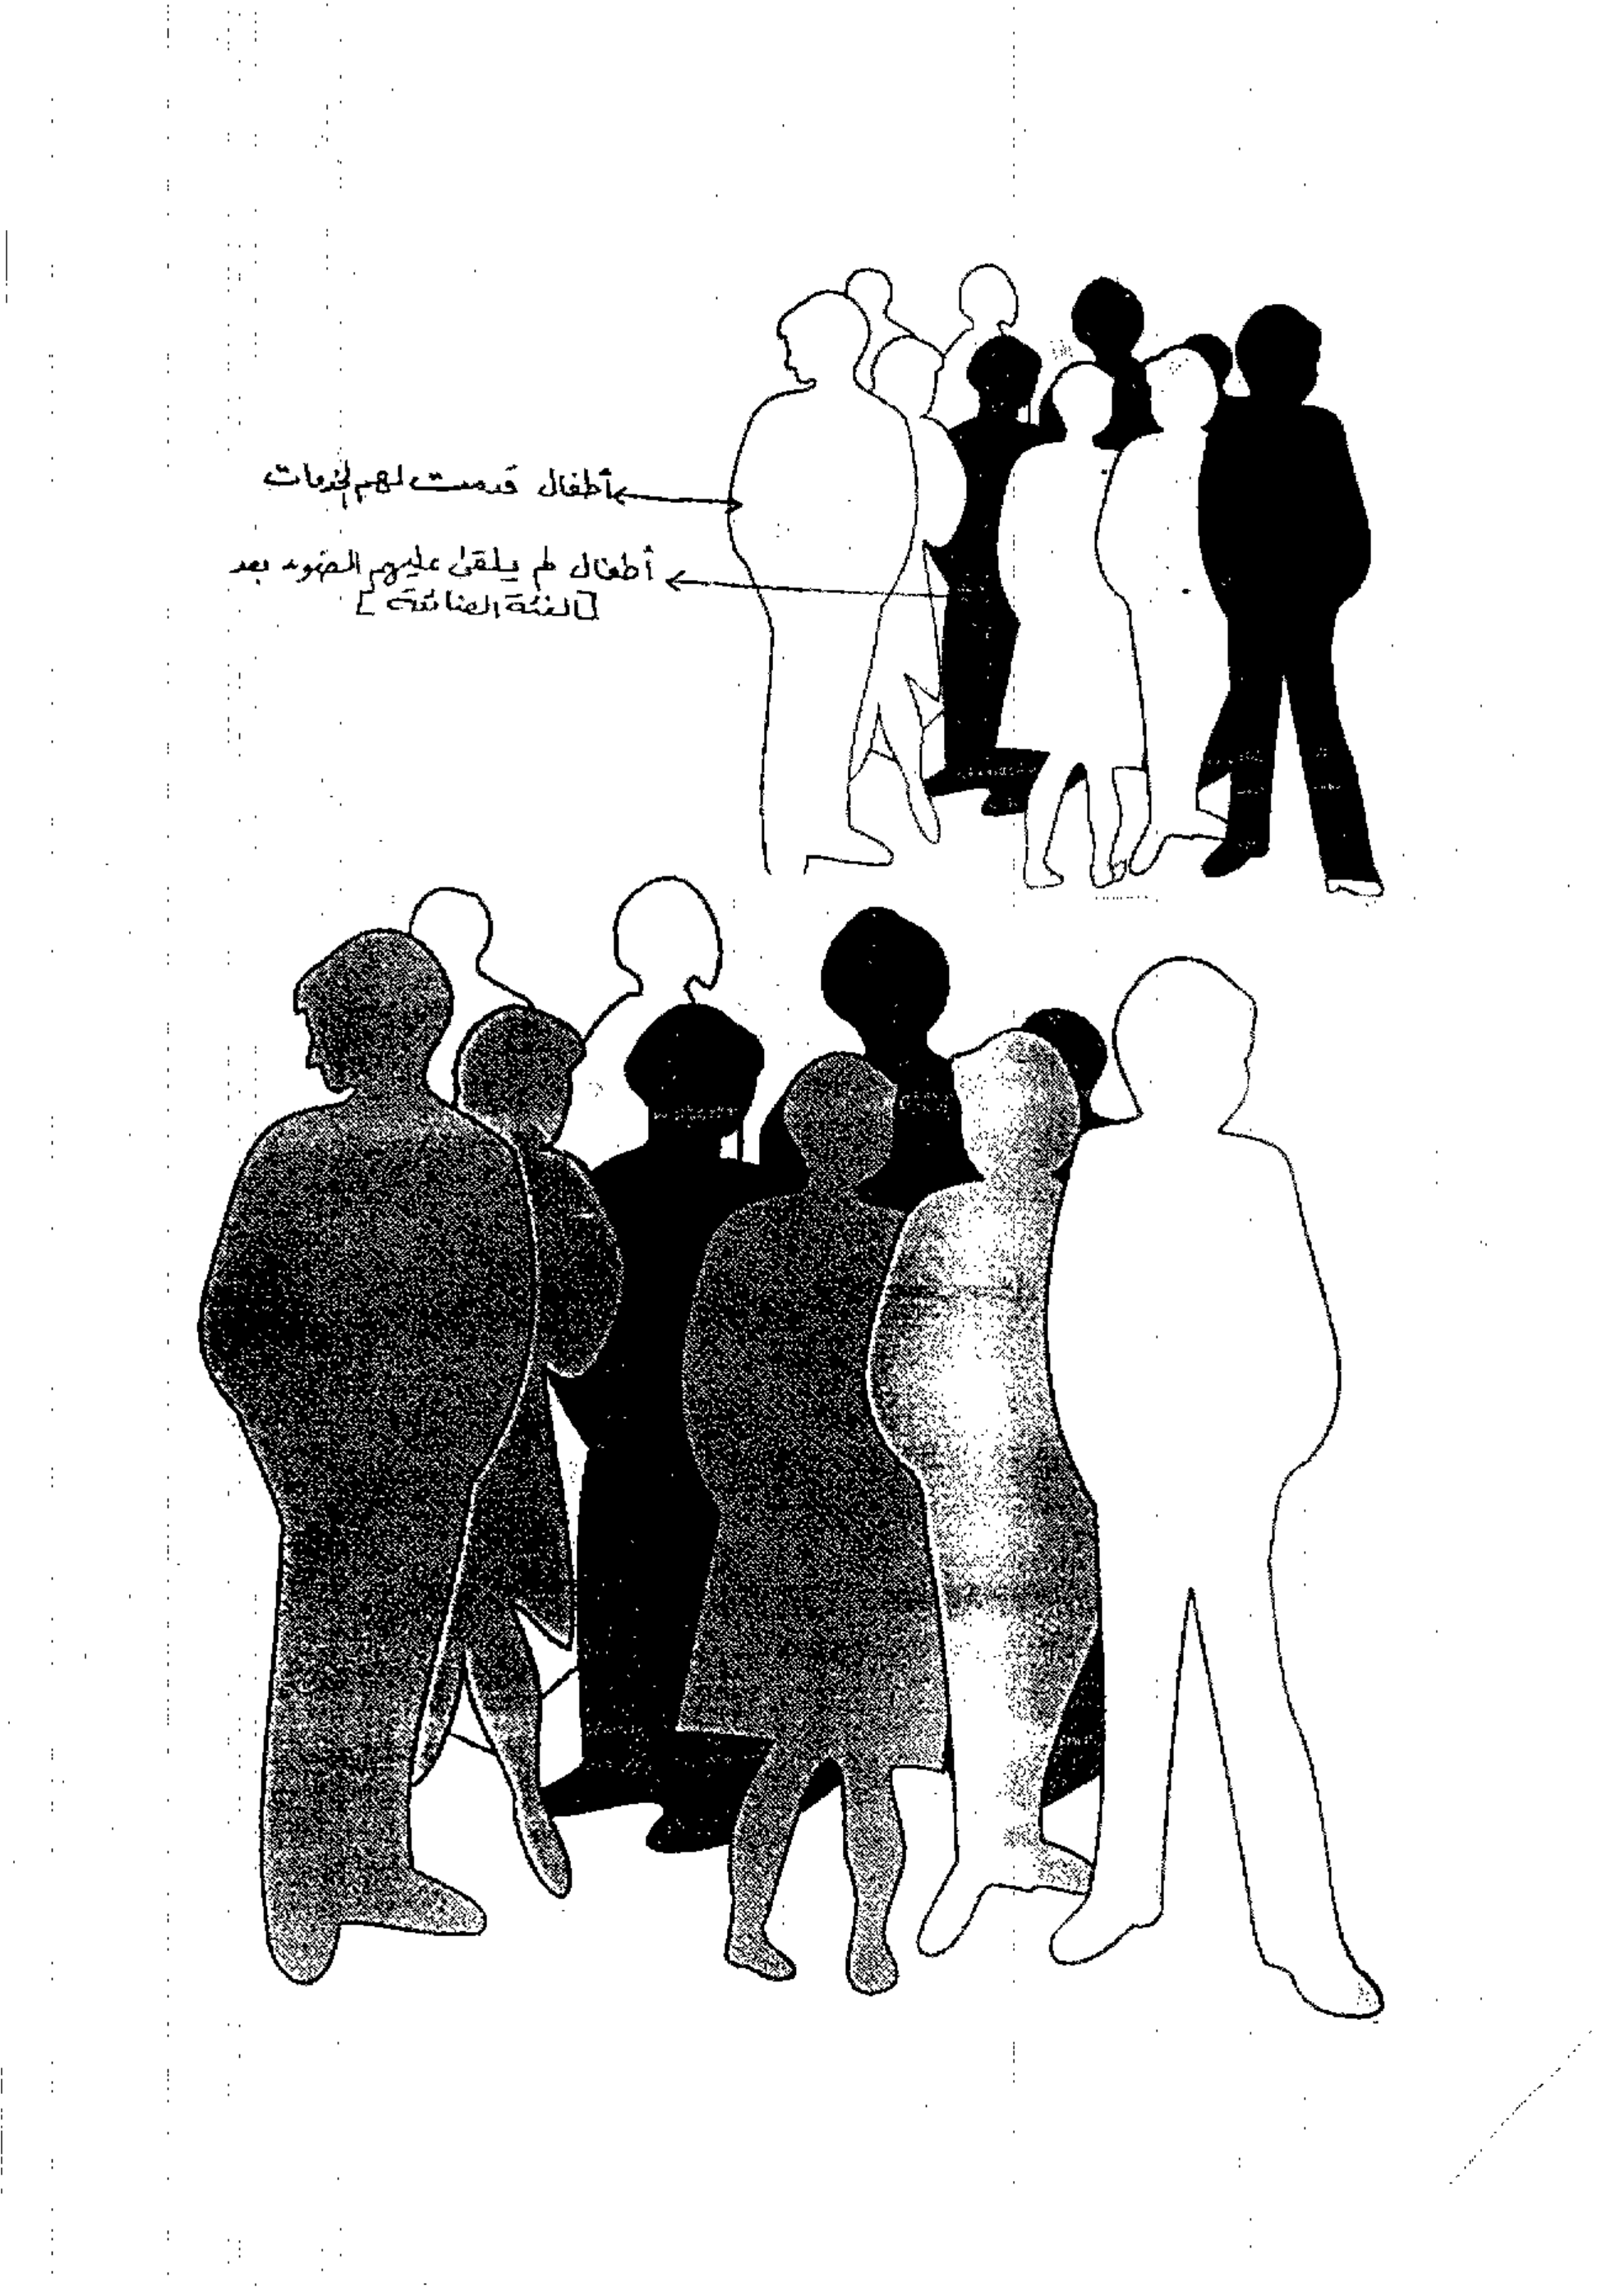 أطفال قدمت لهم الخدمات
أطفال لم يلقى عليهم الضوء بعد
[الفئة الصامتة]